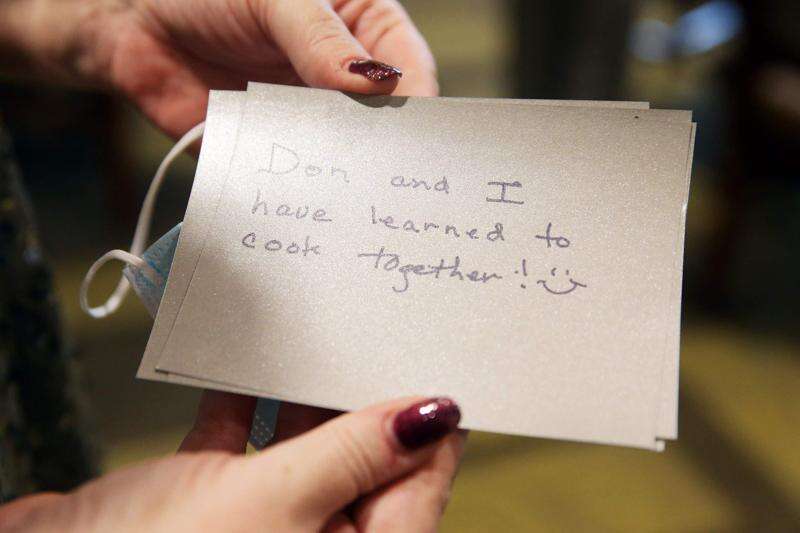 Don and I
have learned to
cook together! :)